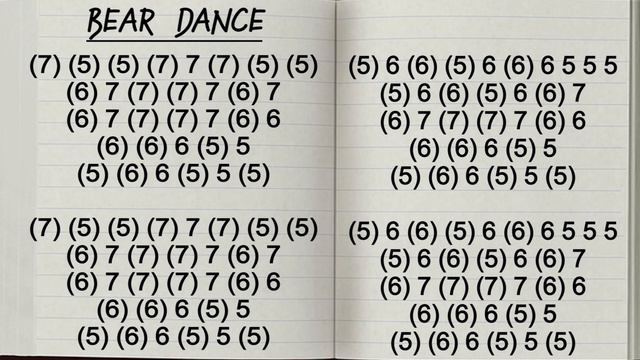 BEAR DANCE
(7) (5) (5) (7) 7 (7) (5) (5)
(6) 7 (7) (7) 7 (6) 7
(6) 7 (7) (7) 7 (6) 6
(6) (6) 6 (5) 5
(5) (6) 6 (5) 5 (5)
(7) (5) (5) (7) 7 (7) (5) (5)
(6) 7 (7) (7) 7 (6) 7
(6) 7 (7) (7) 7 (6) 6
(6) (6) 6 (5) 5
(5) (6) 6 (5) 5 (5)
(5) 6 (6) (5) 6 (6) 6 5 5 5
(5) 6 (6) (5) 6 (6) 7
(6) 7 (7) (7) 7 (6) 6
(6) (6) 6 (5) 5
(5) (6) 6 (5) 5 (5)
(5) 6 (6) (5) 6 (6) 6 5 5 5
(5) 6 (6) (5) 6 (6) 7
(6) 7 (7) (7) 7 (6) 6
(6) (6) 6 (5) 5
(5) (6) 6 (5) 5 (5)